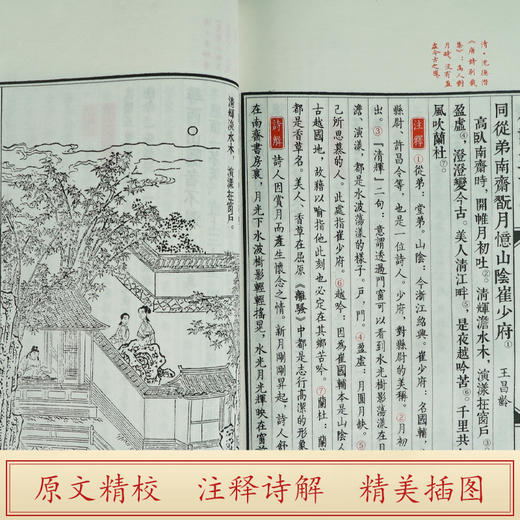 清·沈德潛
《唐詩別裁
集》：高人對
月時，沒有盈
虛今古之感
同從弟南齋翫月憶山陰崔少府① 王昌齡
高臥南齋時，開帷月初吐②。清輝澹水木，演漾在窗戶③
盈虛④，澄澄變今古。美人清江畔⑤，是夜越吟苦⑥。千里共
風吹蘭杜⑦。
注釋 ①從弟：堂弟。山陰：今浙江紹興。崔少府：名國輔，
縣尉、許昌令等，也是一位詩人。少府，對縣尉的美稱。②月初
出。③「清輝」二句：意謂透過門窗可以看到水光樹影蕩漾在月
澹、演漾，都是水波蕩漾的樣子。戶，門。④盈虛：月圓月缺。⑤
己所思慕的人。此處指崔少府。⑥越吟：因為崔國輔本是山陰人
古越國地，故藉以喻指他此刻也必定在其鄉苦吟。⑦蘭杜：蘭
都是香草名。美人、香草在屈原《離騷》中都是志行高潔的形象
詩解 詩人因賞月而產生懷念之情。新月剛剛昇起，詩人舒
在南齋書房裏，月光下水波樹影輕輕搖晃，水光月光輝映在窗前
清輝淡水木，演漾在窗戶。
原文精校 注释诗解 精美插图